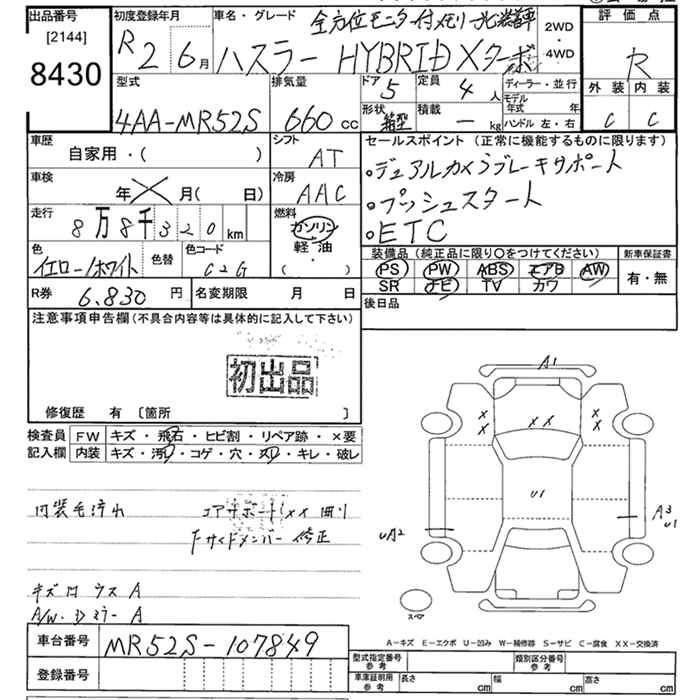 出品番号
[2144]
8430
初度登録年月
R2 6月
車名・グレード
全方位モニター付メモリーナビ装着
ハスラー HYBRID Xターボ
2WD
・
4WD
評価点
R
外装 内装
C C
型式
4AA-MR52S
排気量
660 cc
ドア
5
定員
4 人
形状
箱型
積載
— kg
ディーラー・並行
モデル年式 年
ハンドル 左・右
車歴
自家用・( )
シフト
AT
車検
年 月( 日)
冷房
AAC
走行
8万8千320 km
燃料
ガソリン
軽油
( ・ )
色
イエロー/ホワイト
色替
色コード
C2G
R券
6,830 円
名変期限 月 日
セールスポイント (正常に機能するものに限ります)
・デュアルカメラブレーキサポート
・プッシュスタート
・ETC
装備品 (純正品に限り〇をつけてください)
PS PW ABS エアB AW
SR ナビ TV カワ
新車保証書
有・無
後日品
注意事項申告欄(不具合内容等は具体的に記入して下さい)
初出品
修復歴 有 [箇所 ]
検査員記入欄
FW キズ・飛石・ヒビ割・リペア跡・×要
内装 キズ・汚れ・コゲ・穴・スリ・キレ・破レ
内装毛汚れ
コアサポートXX 曲り
Fサイドメンバー 修正
キズ凹 ウス A
A/W・ドミラー A
A1
XX
U1
UA2
A3
U1
スペア
A-キズ E-エクボ U-凹み W-補修跡 S-サビ C-腐食 XX-交換済
車台番号
MR52S-107849
登録番号
型式指定番号
参考
類別区分番号
参考
車庫証明用
参考
長さ cm 幅 cm 高さ cm